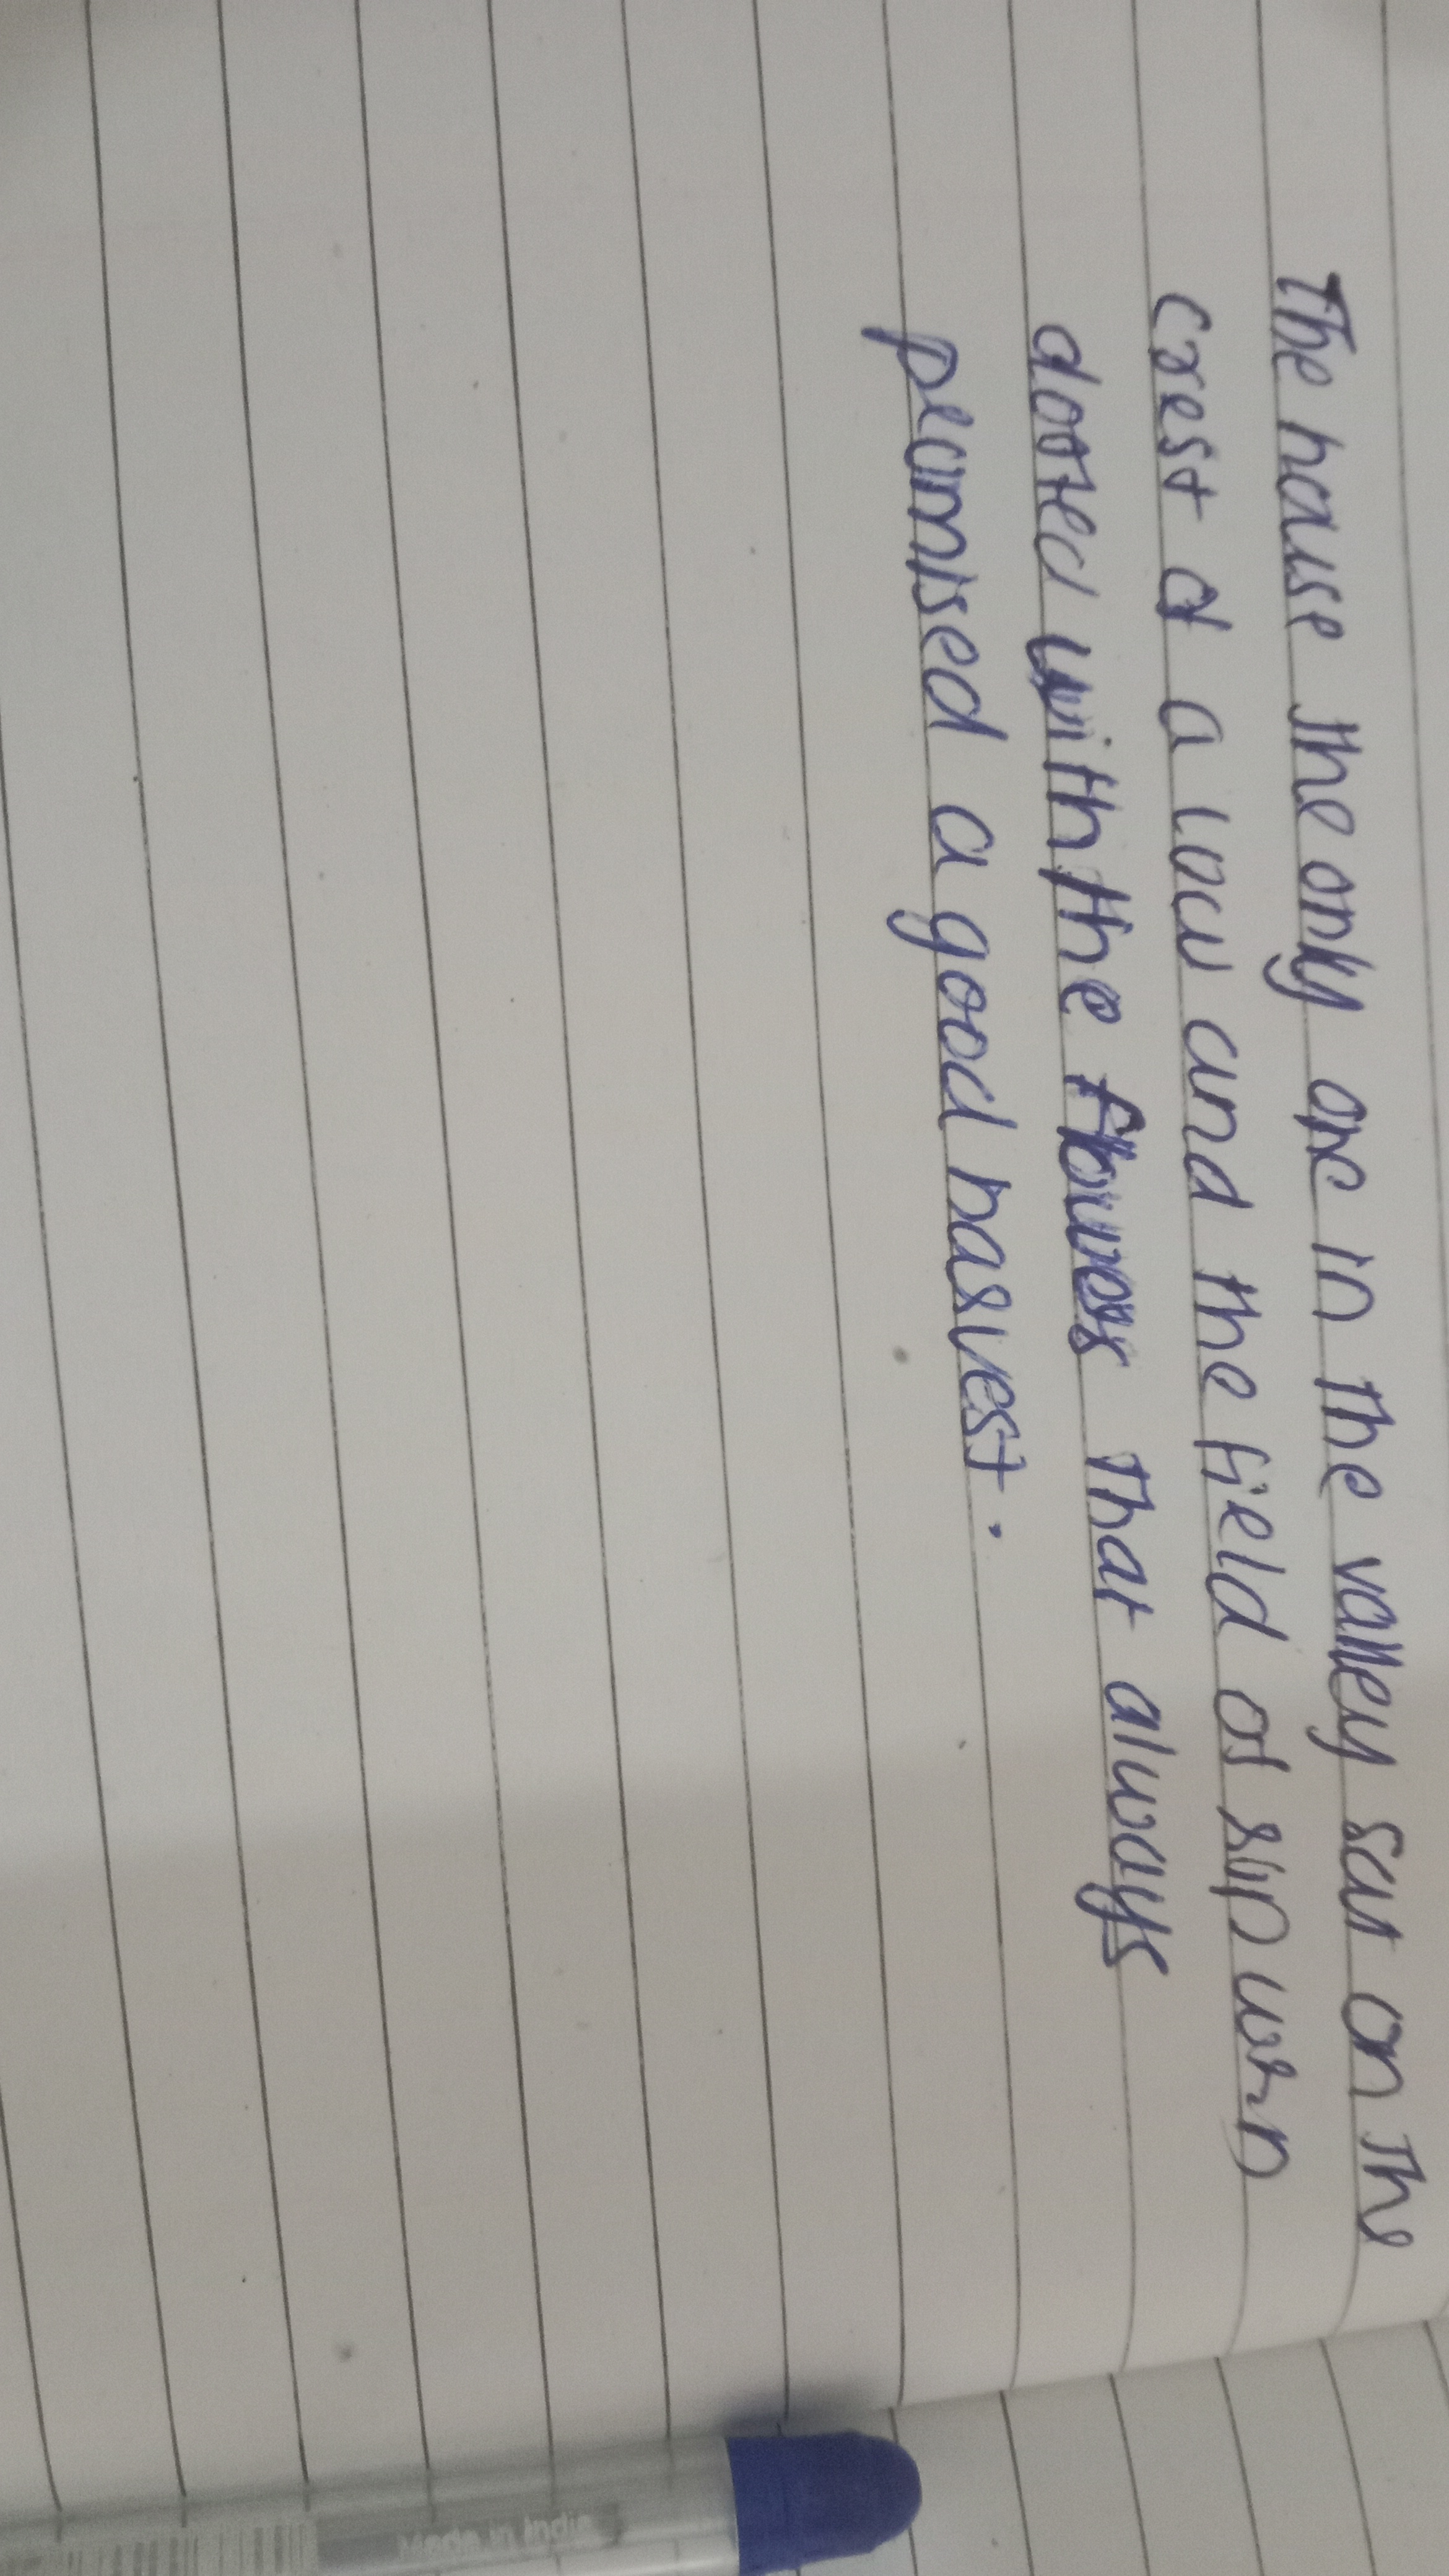 The house the only one in the valley sat on the
crest of a low and the field of rip worn
dotted with the flowers that always
promised a good harvest.
Made in India